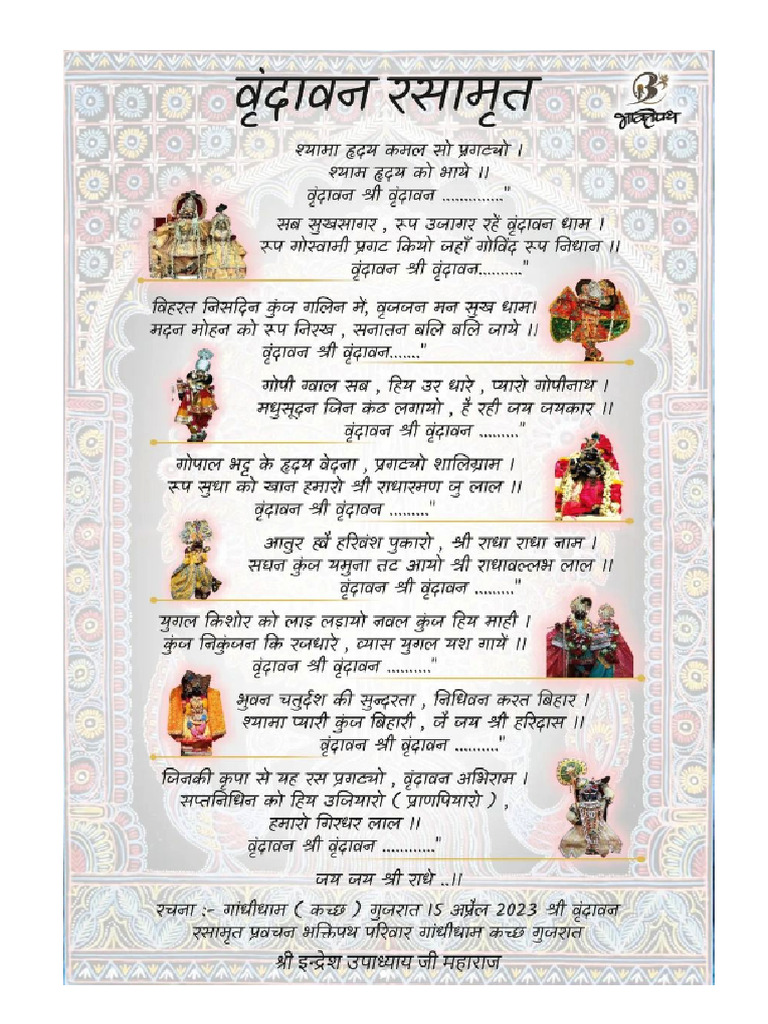 वृंदावन रसामृत
भक्तिपथ
श्यामा हृदय कमल सो प्रगट्यो ।
श्याम हृदय को भाये ।।
वृंदावन श्री वृंदावन .............."
सब सुखसागर , रूप उजागर रहें वृंदावन धाम ।
रूप गोस्वामी प्रगट कियो जहाँ गोविंद रूप निधान ।।
वृंदावन श्री वृंदावन.........."
विहरत निसदिन कुंज गलिन में, वृजजन मन सुख धाम।
मदन मोहन को रूप निरख , सनातन बलि बलि जाये ।।
वृंदावन श्री वृंदावन......."
गोपी ग्वाल सब , हिय उर धारे , प्यारो गोपीनाथ ।
मधुसूदन जिन कंठ लगायो , है रही जय जयकार ।।
वृंदावन श्री वृंदावन ........."
गोपाल भट्ट के हृदय वेदना , प्रगट्यो शालिग्राम ।
रूप सुधा को खान हमारो श्री राधारमण जु लाल ।।
वृंदावन श्री वृंदावन ........."
आतुर ह्वै हरिवंश पुकारो , श्री राधा राधा नाम ।
सघन कुंज यमुना तट आयो श्री राधावल्लभ लाल ।।
वृंदावन श्री वृंदावन ........."
युगल किशोर को लाड़ लड़ायो नवल कुंज हिय माही ।
कुंज निकुंजन कि रजधारे , व्यास युगल यश गायें ।।
वृंदावन श्री वृंदावन .........."
भुवन चतुर्दश की सुन्दरता , निधिवन करत बिहार ।
श्यामा प्यारी कुंज बिहारी , जै जय श्री हरिदास ।।
वृंदावन श्री वृंदावन .........."
जिनकी कृपा से यह रस प्रगट्यो , वृंदावन अभिराम ।
सप्तनिधिन को हिय उजियारो ( प्राणपियारो ) ,
हमारो गिरधर लाल ।।
वृंदावन श्री वृंदावन ............"
जय जय श्री राधे ..।।
रचना :- गांधीधाम ( कच्छ ) गुजरात 15 अप्रैल 2023 श्री वृंदावन
रसामृत प्रवचन भक्तिपथ परिवार गांधीधाम कच्छ गुजरात
श्री इन्द्रेश उपाध्याय जी महाराज